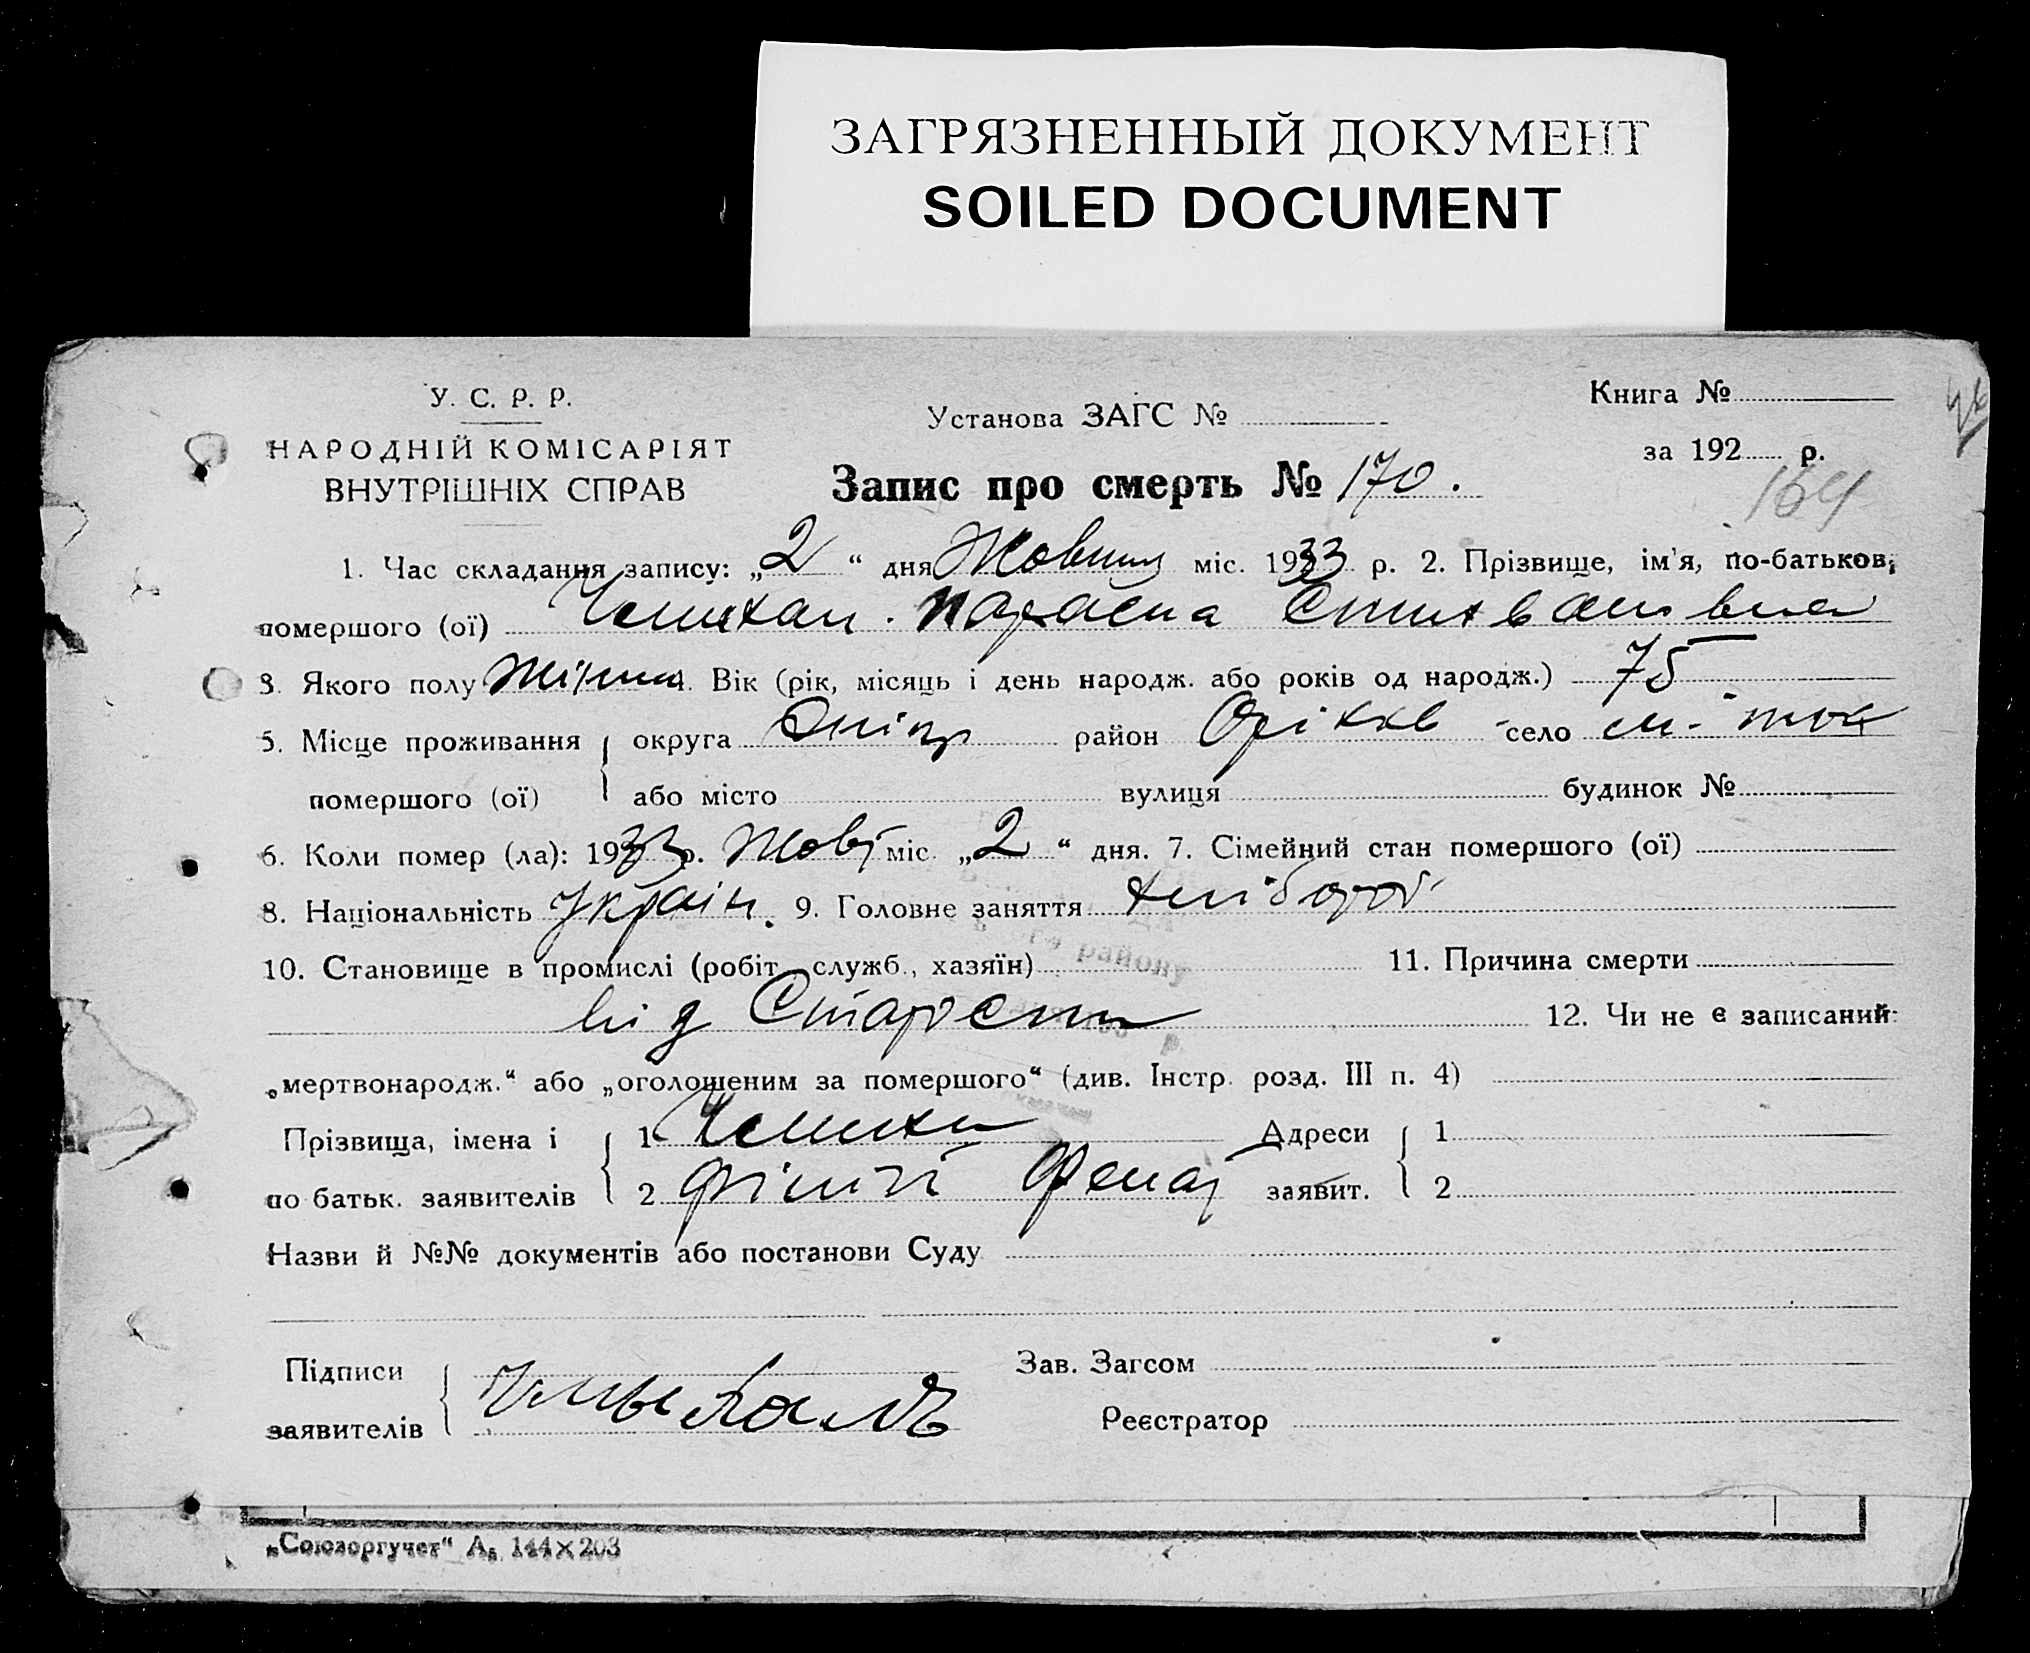 ЗАГРЯЗНЕННЫЙ ДОКУМЕНТ
SOILED DOCUMENT
У. С. Р. Р.
НАРОДНІЙ КОМІСАРІЯТ
ВНУТРІШНІХ СПРАВ
Установа ЗАГС №
Книга №
за 192 р.
164
Запис про смерть № 170.
1. Час складання запису: „2“ дня Жовтня міс. 1933 р. 2. Прізвище, ім'я, по-батькові
помершого (ої) Параска
3. Якого полу 4. Вік (рік, місяць і день народж. або років од народж.) 75
5. Місце проживання округа Дніпр район Оріхів село
помершого (ої) або місто вулиця будинок №
6. Коли помер (ла): 1933 р. Жовт міс. „2“ дня. 7. Сімейний стан помершого (ої)
8. Національність Україн. 9. Головне заняття хлібороб
10. Становище в промислі (робіт., служб., хазяїн) 11. Причина смерти
від Старости 12. Чи не є записаний:
„мертвонародж.“ або „оголошеним за помершого“ (див. Інстр. розд. III п. 4)
Прізвища, імена і 1 Адреси 1
по батьк. заявителів 2 заявит. 2
Назви й №№ документів або постанови Суду
Підписи Зав. Загсом
заявителів Реєстратор
„Союзоргучет“ А5 144×203